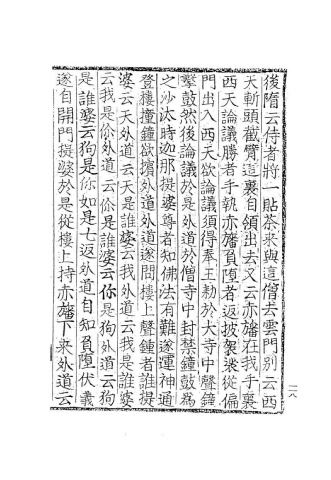 後隋云侍者將一貼茶來與這僧去雲門別云西
天斬頭截臂這裏自領出去又云赤旛在我手裏
西天論議勝者手執赤旛負墮者返披袈裟從偏
門出入西天欲論議須得奉王勅於大寺中聲鐘
擊鼓然後論議於是外道於僧寺中封禁鐘鼓爲
之沙汰時迦那提婆尊者知佛法有難遂運神通
登樓撞鐘欲擯外道外道遂問樓上聲鍾者誰提
婆云天外道云天是誰婆云我外道云我是誰婆
云我是你外道云你是誰婆云你是狗外道云狗
是誰婆云狗是你如是七返外道自知負墮伏義
遂自開門提婆於是從樓上持赤旛下來外道云
二八